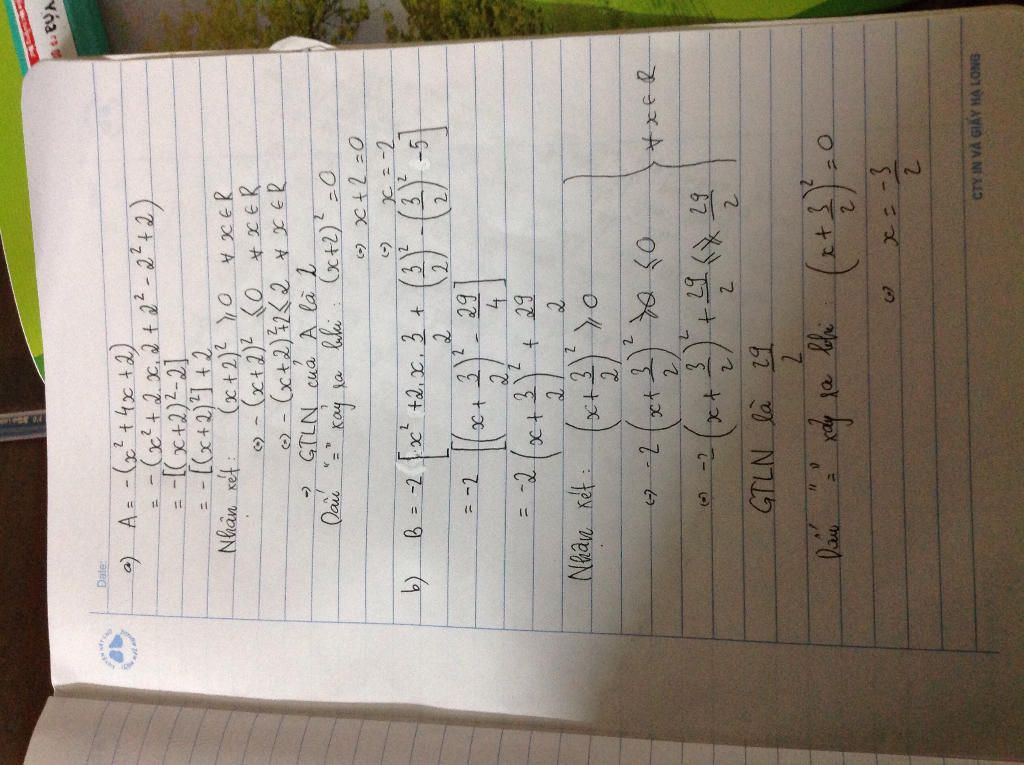 Date:
a) A = -(x² + 4x + 2)
= -(x² + 2.x.2 + 2² - 2² + 2)
= -[(x+2)² - 2]
= -[(x+2)²] + 2
Nhận xét: (x+2)² ⩾ 0 ∀ x ∈ R
⇔ -(x+2)² ⩽ 0 ∀ x ∈ R
⇔ -(x+2)² + 2 ⩽ 2 ∀ x ∈ R
⇒ GTLN của A là 2
Dấu "=" xảy ra khi: (x+2)² = 0
⇔ x + 2 = 0
⇔ x = -2
b) B = -2 [x² + 2.x.3/2 + (3/2)² - (3/2)² - 5]
= -2 [(x + 3/2)² - 29/4]
= -2 (x + 3/2)² + 29/2
Nhận xét: (x + 3/2)² ⩾ 0
⇔ -2 (x + 3/2)² ⩽ 0
∀ x ∈ R
⇔ -2 (x + 3/2)² + 29/2 ⩽ 29/2
GTLN là 29/2
Dấu "=" xảy ra khi: (x + 3/2)² = 0
⇔ x = -3/2
CTY IN VÀ GIẤY HẠ LONG